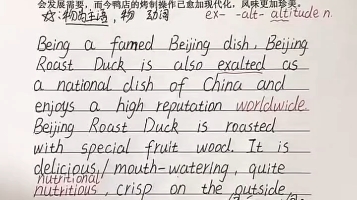 会发展需要,而今鸭店的烤制操作已愈加现代化,风味更加珍美。
物为主语,物 动词 ex- -alt- altitude n.
Being a famed Beijing dish, Beijing
Roast Duck is also exalted as
a national dish of China and
enjoys a high reputation worldwide
Beijing Roast Duck is roasted
with special fruit wood. It is
delicious/mouth-watering, quite
nutritional
nutritious, crisp on the outside